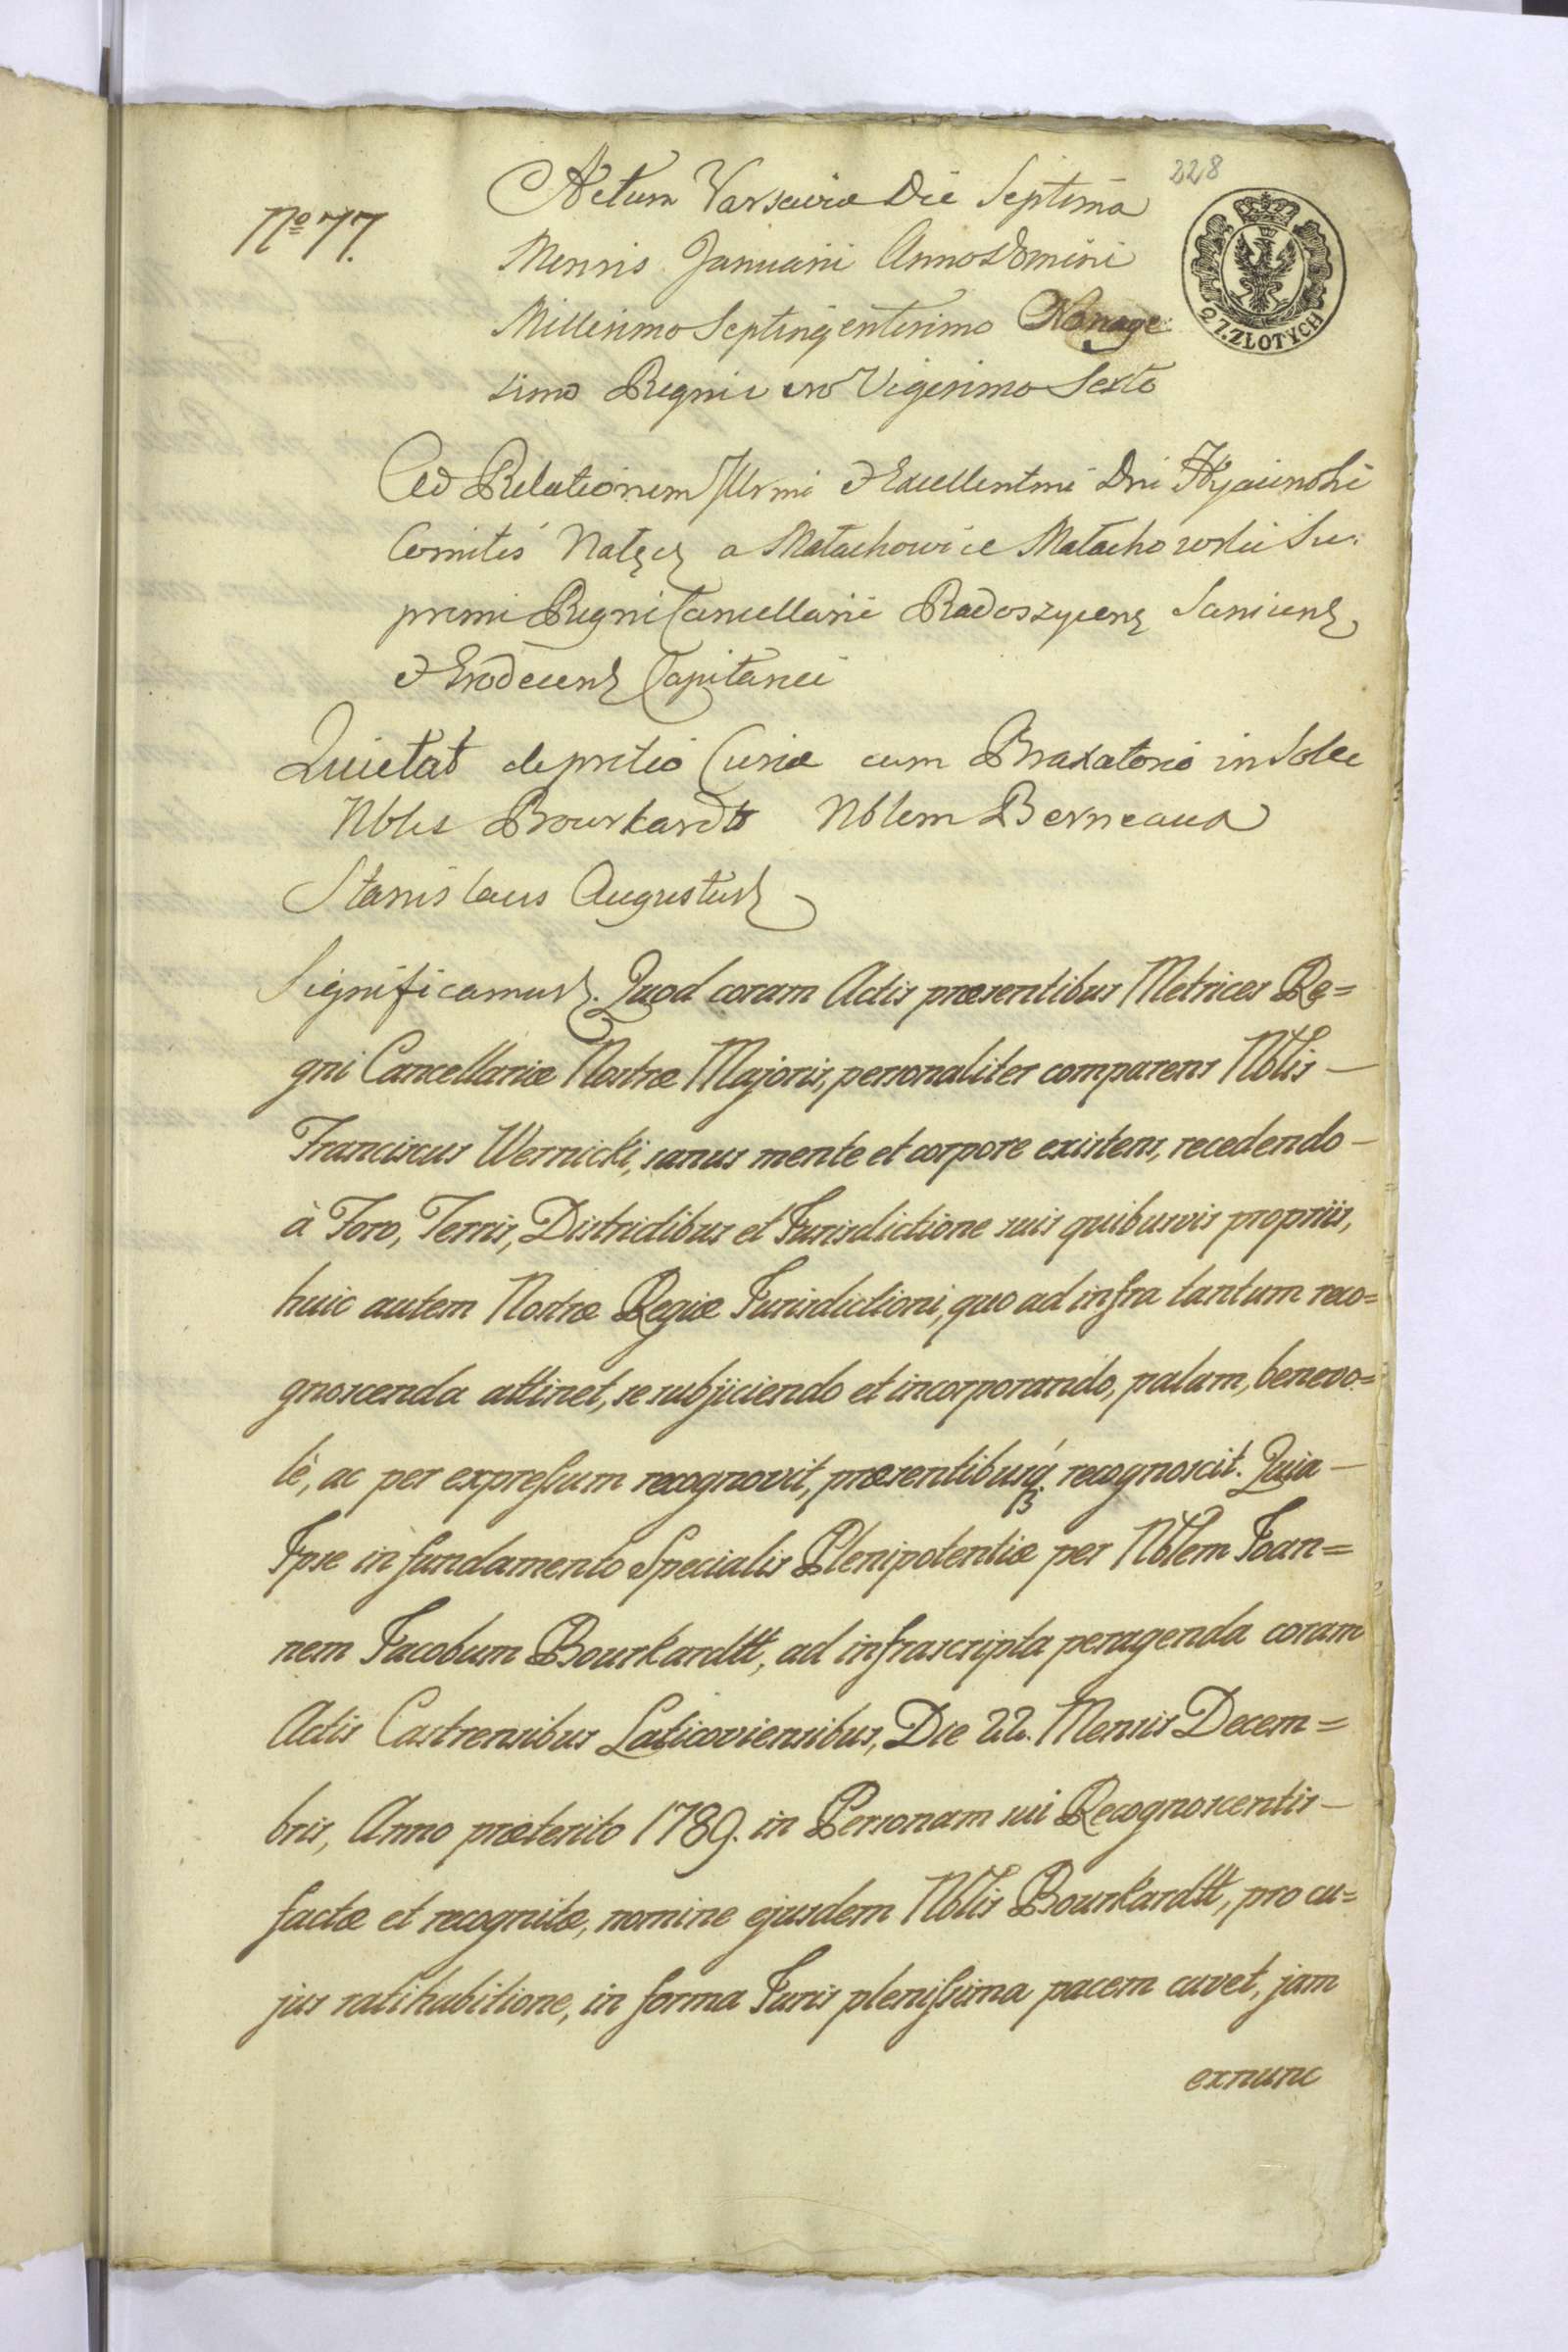 228
Nº 77.
Actum Varsaviæ Die Septima
Mensis Januarii Anno Domini
Millesimo Septingentesimo Nonage:
simo Regni vero Vigesimo Sexto
Q 7. ZŁOTYCH
Ad Relationem Illrmi & Excellentmi Dni Hyacinthi
Comitis Nałęcz a Małachowice Małachowski Su:
premi Regni Cancellarii Radoszycens Sanicens
& Grodecens Capitanei
Quietat de pretio Curiæ cum Braxatorio in Solec
Nblis Bourkardtt Nblem Berneaux
Stanislaus Augustus
Significamus. Quod coram Actis præsentibus Metrices Re=
gni Cancellariæ Nostræ Majoris, personaliter comparens Nblis —
Franciscus Wernicki, sanus mente et corpore existens, recedendo —
à Foro, Terris, Districtibus et Jurisdictione suis quibusvis propriis,
huic autem Nostræ Regiæ Jurisdictioni, quo ad infra tantum reco=
gnoscenda attinet, se subjiciendo et incorporando, palam, benevo=
lè, ac per expressum recognovit, præsentibusq́ recognoscit. Quia —
Ipse in fundamento Specialis Plenipotentiæ per Nblem Joan=
nem Jacobum Bourkardtt, ad infrascripta peragenda coram
Actis Castrensibus Laticoviensibus, Die 22. Mensis Decem=
bris, Anno præterito 1789. in Personam sui Recognoscentis —
factæ et recognitæ, nomine ejusdem Nblis Bourkardtt, pro cu=
jus ratihabitione, in forma Juris plenissima pacem cavet, jam
exnunc